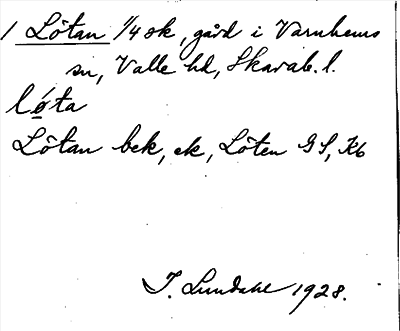 1 Lötan 1/4 sk, gård i Varnhems
sn, Valle hd, Skarab. l.
lø̀ta
Lötan bek, ek, Löten GS, Kb
I. Lundahl 1928.